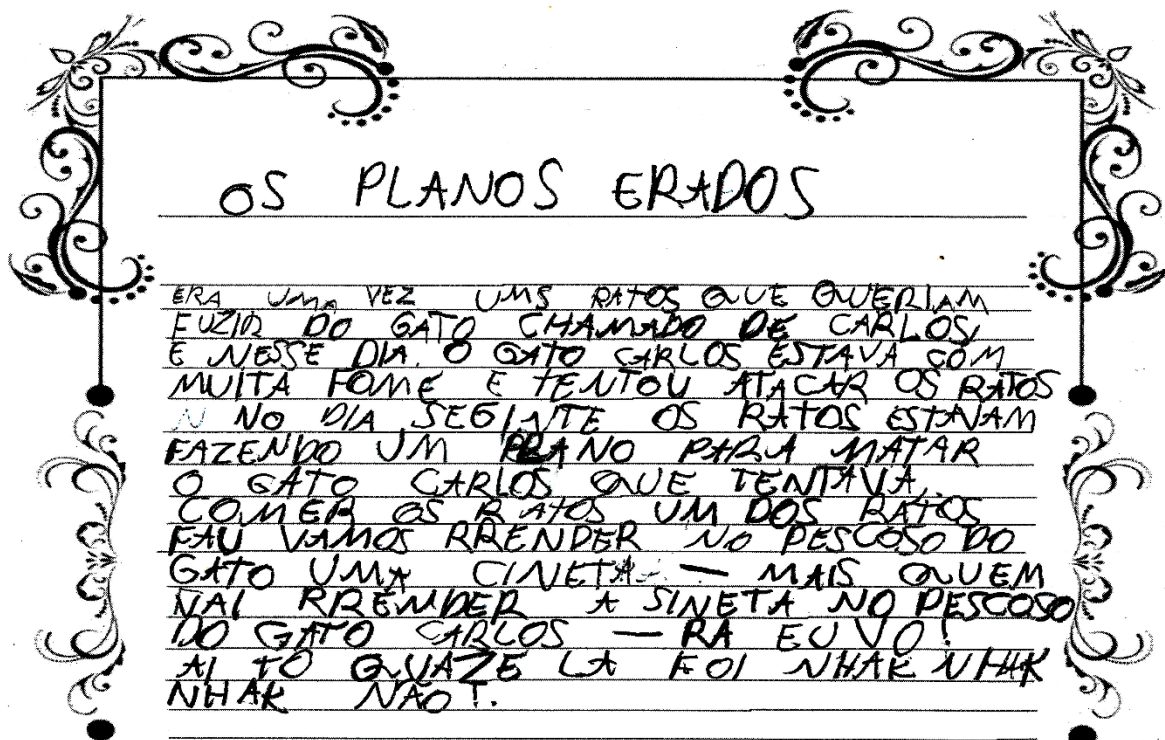 OS PLANOS ERADOS
ERA UMA VEZ UMS RATOS QUE QUERIAM
FUZIR DO GATO CHAMADO DE CARLOS,
E NESSE DIA. O GATO CARLOS ESTAVA COM
MUITA FOME E TENTOU ATACAR OS RATOS
N NO DIA SEGINTE OS RATOS ESTAVAM
FAZENDO UM PRANO PARA MATAR
O GATO CARLOS QUE TENTAVA
COMER OS RATOS UM DOS RATOS
FAU VAMOS RRENDER NO PESCOSO DO
GATO UMA CINETA — MAIS QUEM
VAI RRENDER A SINETA NO PESCOSO
DO GATO CARLOS — RA EU VO!
AI TO QUAZE LA FOI NHAK NHAK
NHAK NÃO!.